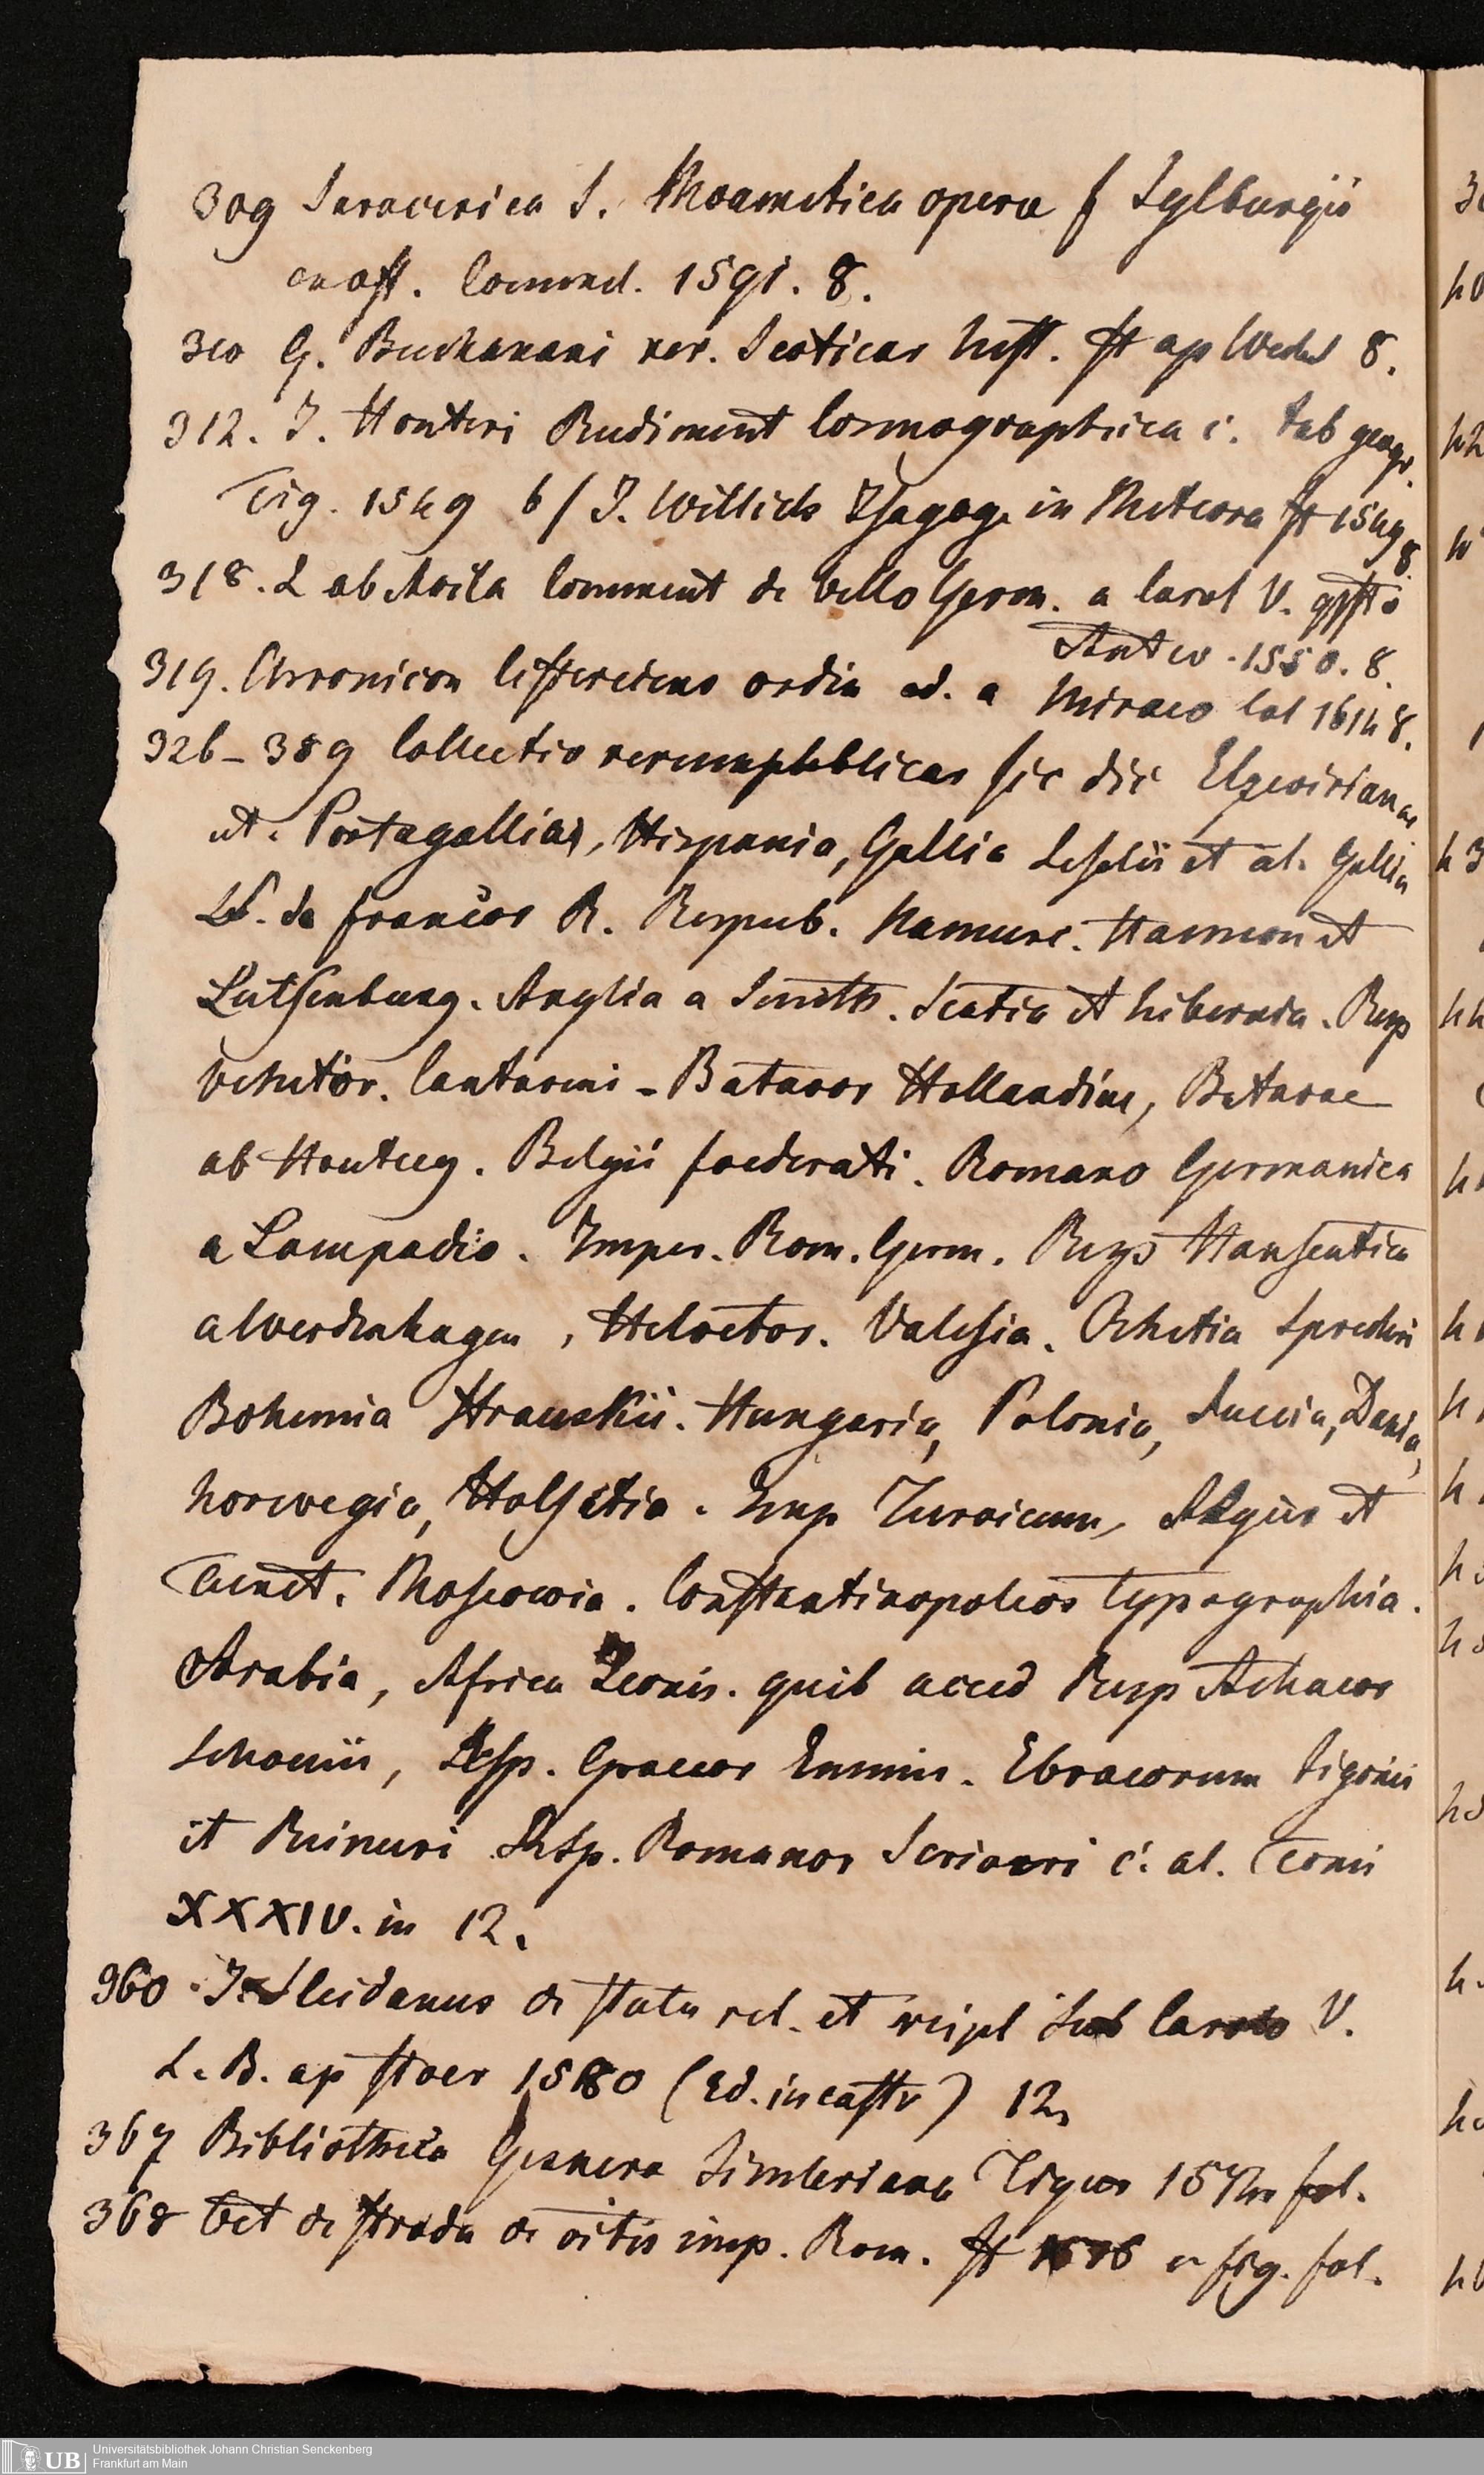 309 Saracenica S. Moametica opera f Sylburgii
en aſt. Commel. 1591. 8.
310 G. Buchanani rer. Scoticar hist. ff ap Wechel 8.
312. J. Honteri Rudiment Cosmographica c. tab geogr.
Tig. 1549 b/ J. Willich Isagoge in Meteora ff 1549 8.
318. L ab Avila Comment de bello Germ. a Carol V. gesto
Antw. 1550. 8.
319. Chronicon Cisterciens ordin ed. a Miraeo Col 1614 8.
326-359 Collectio rerumpublicar sic dic Elzevirianar
ut. Portugalliae, Hispania, Gallia Leselii et al. Gallia
de francor R. Respub. Namurc. Hannon et
Lutsenburg. Anglia a Smith. Scotia et hibernia. Resp
Venetor. Contareni - Batavor Hollandiae, Batavae
ab Houteeg. Belgii foederati. Romano Germanica
a Lampadio. Imper. Rom. Germ. Resp Hanseatica
a Werdenhagen, Helvetor. Valesia. Rhetia Sprecheri
Bohemia Stranskii. Hungaria, Polonia, Suecia, Dania,
Norwegia, Holsatia. Imp Turcicum, Algier et
Tunet. Moscowia. Constantinopoleos typographia.
Arabia, Africa Leonis. quib acced Resp Achaeor
Schoockii, Resp. Graecor Emmii. Ebraeorum Sigonii
et Resp. Romanor Scriveri c. al. Tomi
XXXIV. in 12.
360 J. Sleidanus de statu rel. et reipl sub Carolo V.
L. B. ap Stoer 1580 (Ed. in castr) 12.
367 Bibliotheca Gesnera Simleriana Tigur 1574 fol.
368 Oct de Strada de vitis imp. Rom. ff c fig. fol.
Universitätsbibliothek Johann Christian Senckenberg
Frankfurt am Main
UB